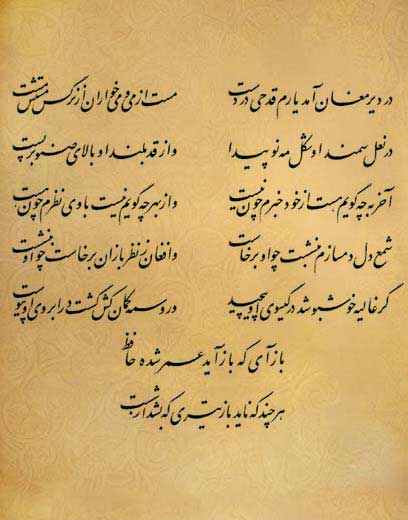 در دیر مغان آمد یارم قدحی در دست مست از می و می خواران از نرگس مستش مست
در نعل سمند او شکل مه نو پیدا وز قد بلند او بالای صنوبر پست
آخر به چه گویم هست از خود خبرم چون نیست وز بهر چه گویم نیست با وی نظرم چون هست
شمع دل دمسازم بنشست چو او برخاست و افغان ز نظربازان برخاست چو او بنشست
گر غالیه خوشبو شد در گیسوی او پیچید ور وسمه کمان کش گشت در ابروی او پیوست
بازآی که بازآید عمر شده حافظ
هر چند که ناید باز تیری که بشد از شست